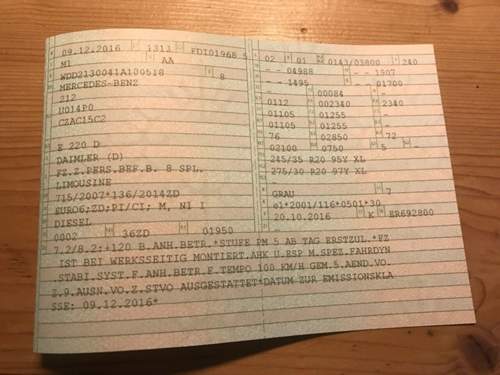 09.12.2016 1313 FDI01968 5
M1 AA
WDD2130041A100518 8
MERCEDES-BENZ
212
U014P0
CZAC15C2
E 220 D
DAIMLER (D)
FZ.Z.PERS.BEF.B. 8 SPL.
LIMOUSINE
715/2007*136/2014ZD
EURO6;ZD;PI/CI; M, NI I
DIESEL
0002 36ZD 01950
02 01 0143/03800 240
- - 04988 - - 1507
- - 1495 - - 01700
- 00084 -
0112 002340 2340
01105 01255 -
01105 01255 -
76 02850 72
02100 0750 5 -
245/35 R20 95Y XL
275/30 R20 97Y XL
-
GRAU 7
e1*2001/116*0501*30
20.10.2016 K ER692800
-
7.2/8.2:+120 B.ANH.BETR.*STUFE PM 5 AB TAG ERSTZUL.*FZ
IST BEI WERKSSEITIG MONTIERT.AHK U.ESP M.SPEZ.FAHRDYN
STABI.SYST.F.ANH.BETR.F.TEMPO 100 KM/H GEM.5.AEND.VO.
Z.9.AUSN.VO.Z.STVO AUSGESTATTET*DATUM ZUR EMISSIONSKLA
SSE: 09.12.2016*